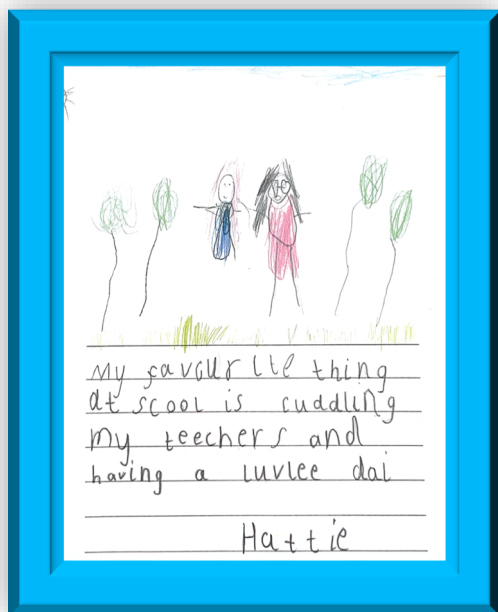 My favourite thing
at scool is cuddling
my teechers and
having a luvlee dai
Hattie